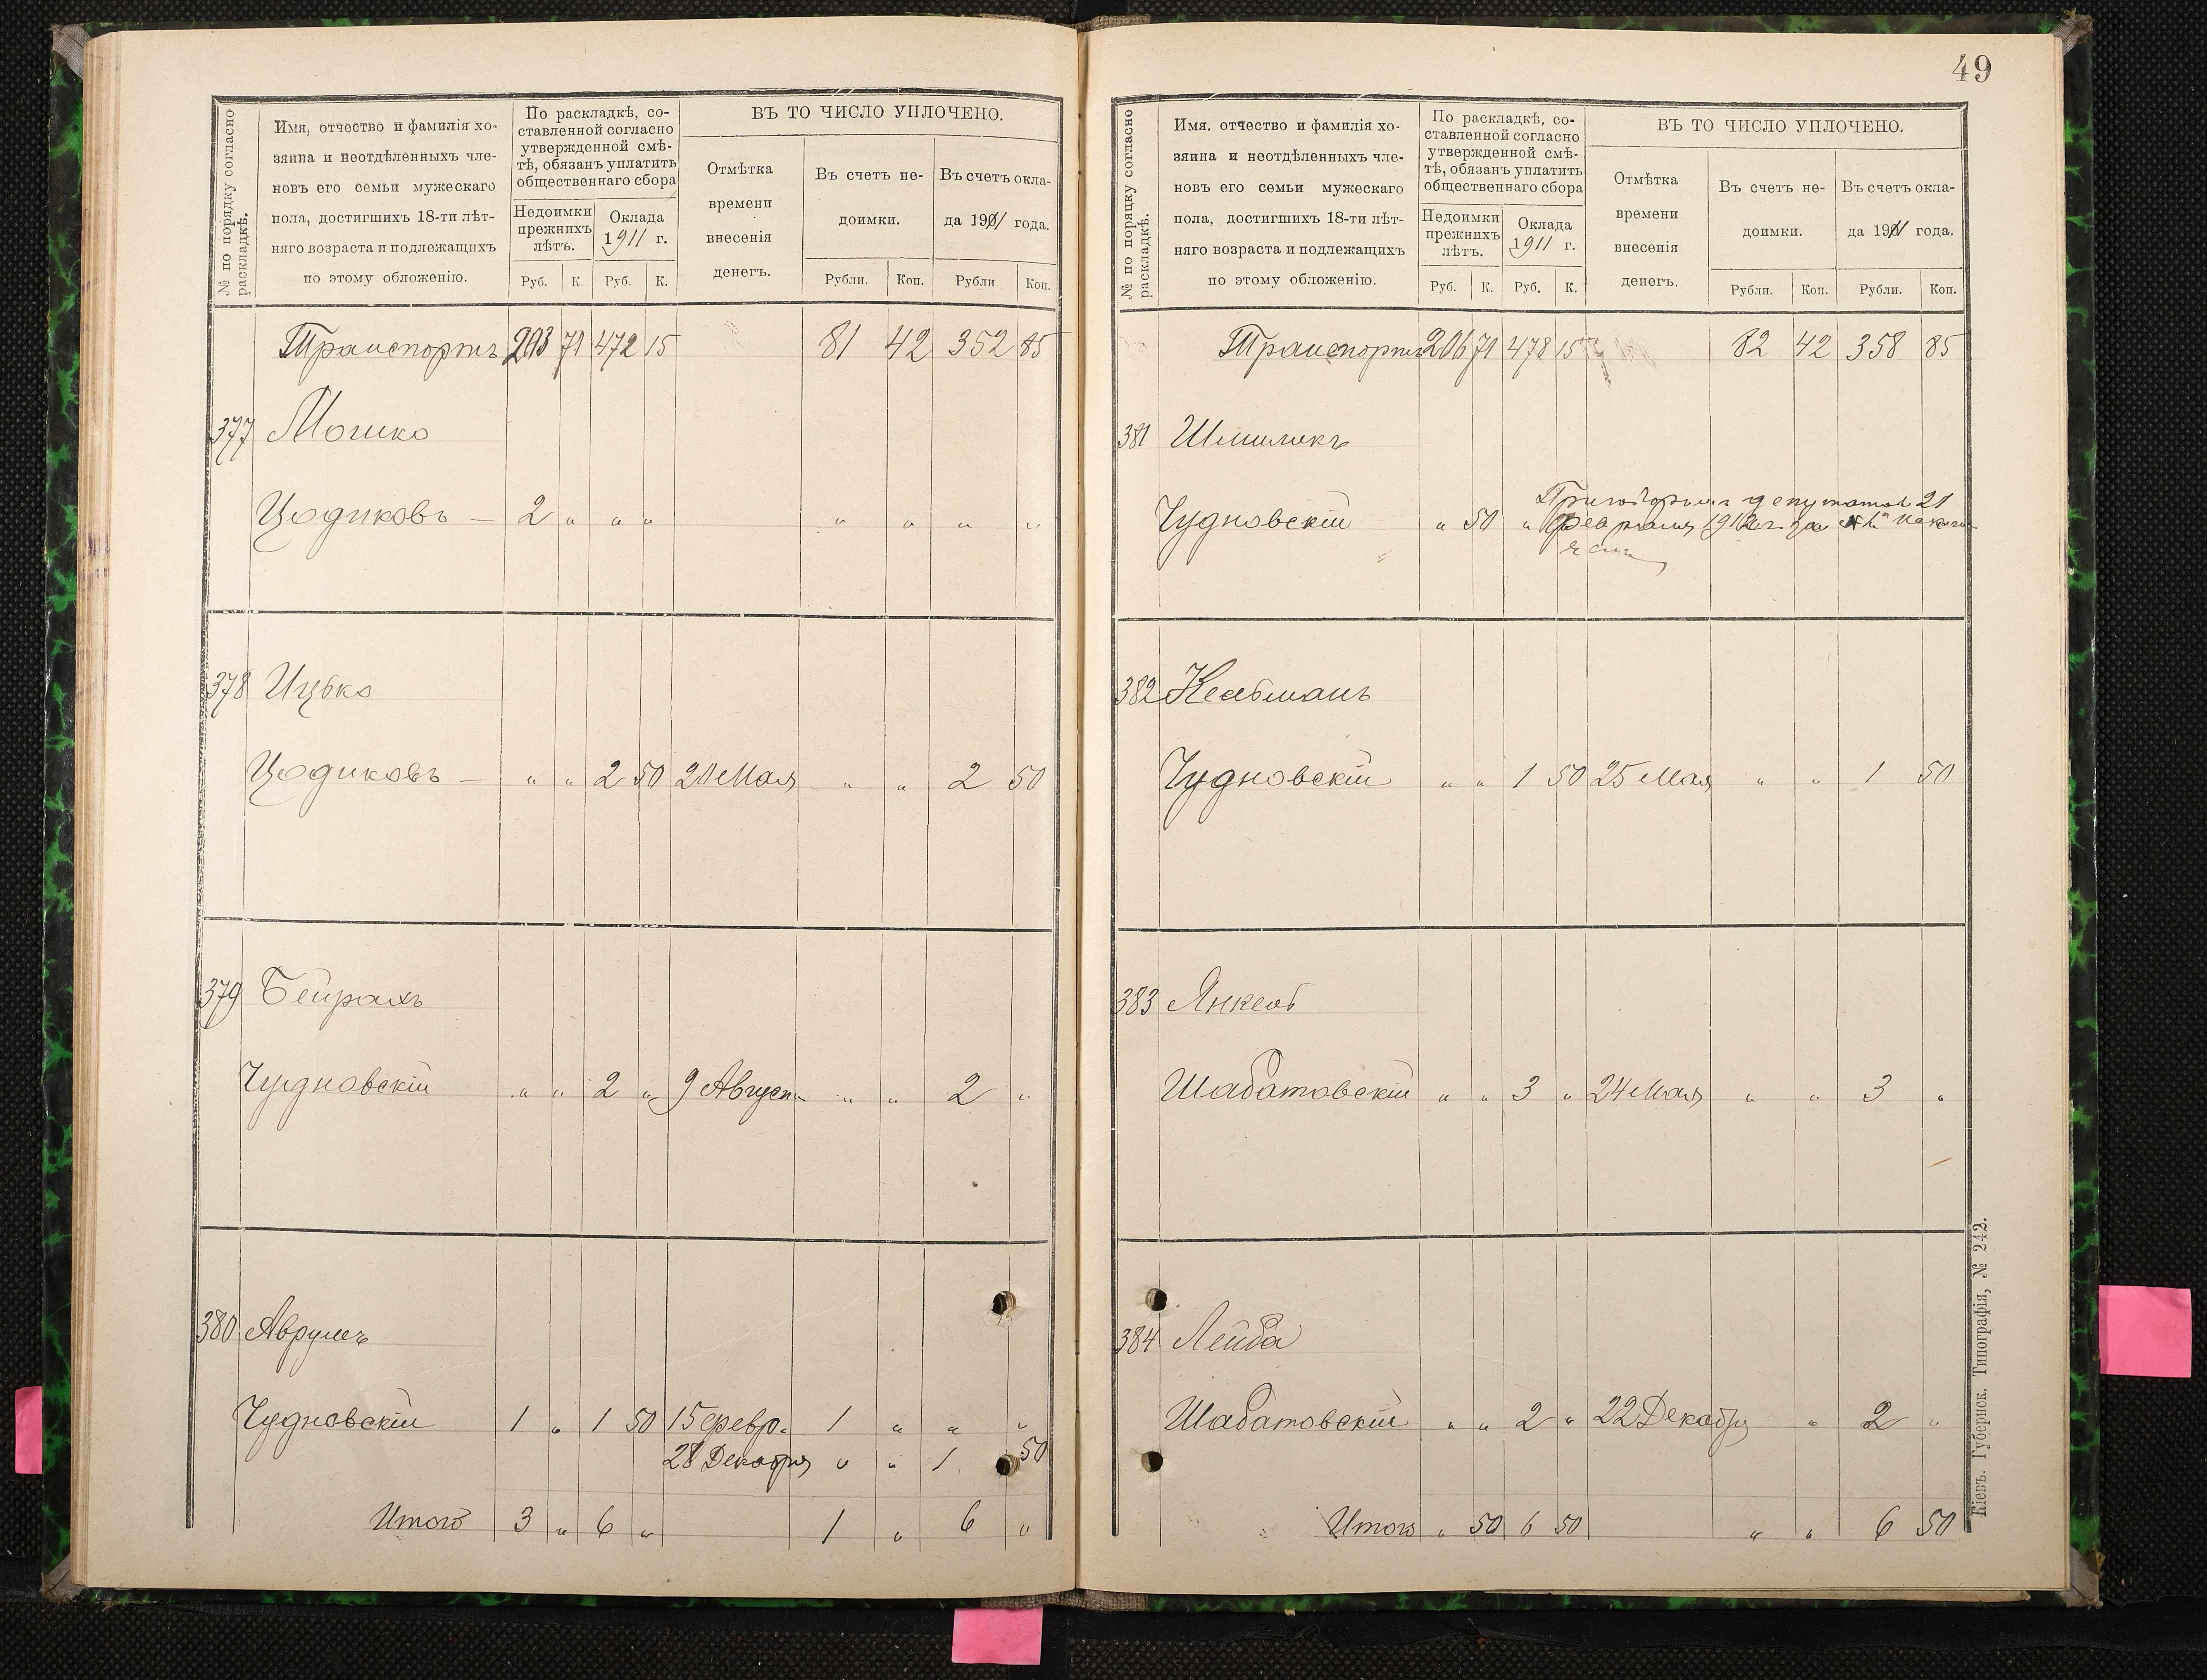 49
№ по порядку согласно раскладкѣ.
Имя, отчество и фамилія хо-
зяина и неотдѣленныхъ чле-
новъ его семьи мужескаго
пола, достигшихъ 18-ти лѣт-
няго возраста и подлежащихъ
по этому обложенію.
По раскладкѣ, со-
ставленной согласно
утвержденной смѣ-
тѣ, обязанъ уплатить
общественнаго сбора
Недоимки
прежнихъ
лѣтъ.
Оклада
1911 г.
Руб. К. Руб. К.
ВЪ ТО ЧИСЛО УПЛОЧЕНО.
Отмѣтка
времени
внесенія
денегъ.
Въ счетъ не-
доимки.
Въ счетъ окла-
да 1911 года.
Рубли. Коп. Рубли Коп.
Транспортъ 203 71 472 15 81 42 352 85
377 Мошко
Цодиковъ — 2 „ „ „ „ „ „ „
378 Ицько
Цодиковъ — „ „ 2 50 20 Мая „ „ 2 50
379 Бейрахъ
Чудновскій „ „ 2 „ 9 Август. „ „ 2 „
380 Аврумъ
Чудновскій 1 „ 1 50 15 февр. 1 „ „ „
28 Декабря „ „ 1 50
Итого 3 „ 6 „ 1 „ 6 „
№ по порядку согласно раскладкѣ.
Имя. отчество и фамилія хо-
зяина и неотдѣленныхъ чле-
новъ его семьи мужескаго
пола, достигшихъ 18-ти лѣт-
няго возраста и подлежащихъ
по этому обложенію.
По раскладкѣ, со-
ставленной согласно
утвержденной смѣ-
тѣ, обязанъ уплатить
общественнаго сбора
Недоимки
прежнихъ
лѣтъ.
Оклада
1911 г.
Руб. К. Руб. К.
ВЪ ТО ЧИСЛО УПЛОЧЕНО.
Отмѣтка
времени
внесенія
денегъ.
Въ счетъ не-
доимки.
Въ счетъ окла-
да 1911 года.
Рубли. Коп. Рубли. Коп.
Транспортъ 206 71 478 15 82 42 358 85
381 Шмиликъ
Приговоромъ депутатов 21
Чудновскій „ 50 „ февраля 1912 г. за №
382 Кельманъ
Чудновскій „ „ 1 50 25 Мая „ „ 1 50
383 Янкель
Шабатовскій „ „ 3 „ 24 Мая „ „ 3 „
384 Лейба
Шабатовскій „ „ 2 „ 22 Декабря „ 2 „
Итого „ 50 6 50 „ „ 6 50
Кіевъ. Губернск. Типографія, № 242.